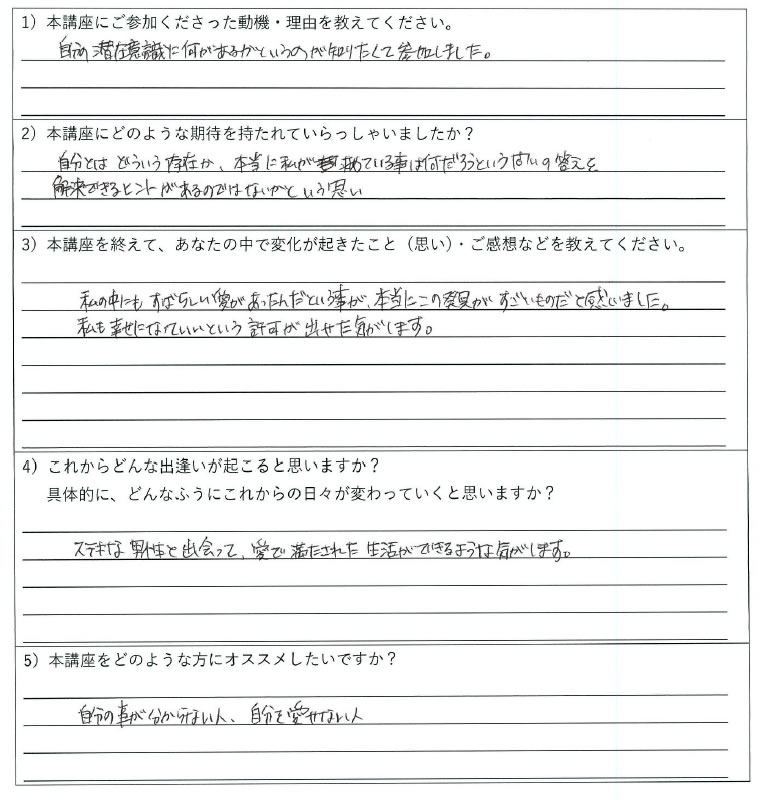 1）本講座にご参加くださった動機・理由を教えてください。
自分の潜在意識に何があるかというのが知りたくて参加しました。
2）本講座にどのような期待を持たれていらっしゃいましたか？
自分とは どういう存在か、本当に私が求めている事は何だろうという問いの答えを
解決できるヒントがあるのではないかという思い
3）本講座を終えて、あなたの中で変化が起きたこと（思い）・ご感想などを教えてください。
私の中にも すばらしい愛があったんだという事が、本当にこの発見が すごいものだと感じました。
私も幸せになっていいという 許可が 出せた気がします。
4）これからどんな出逢いが起こると思いますか？
具体的に、どんなふうにこれからの日々が変わっていくと思いますか？
ステキな 男性と出会って、愛で満たされた 生活ができるような気がします。
5）本講座をどのような方にオススメしたいですか？
自分の事が分からない人、自分を愛せない人